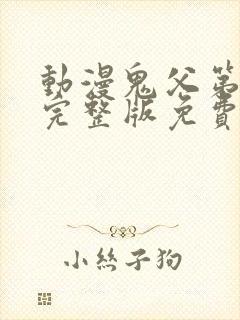 動漫鬼父第
完整版免費
小絲子狗